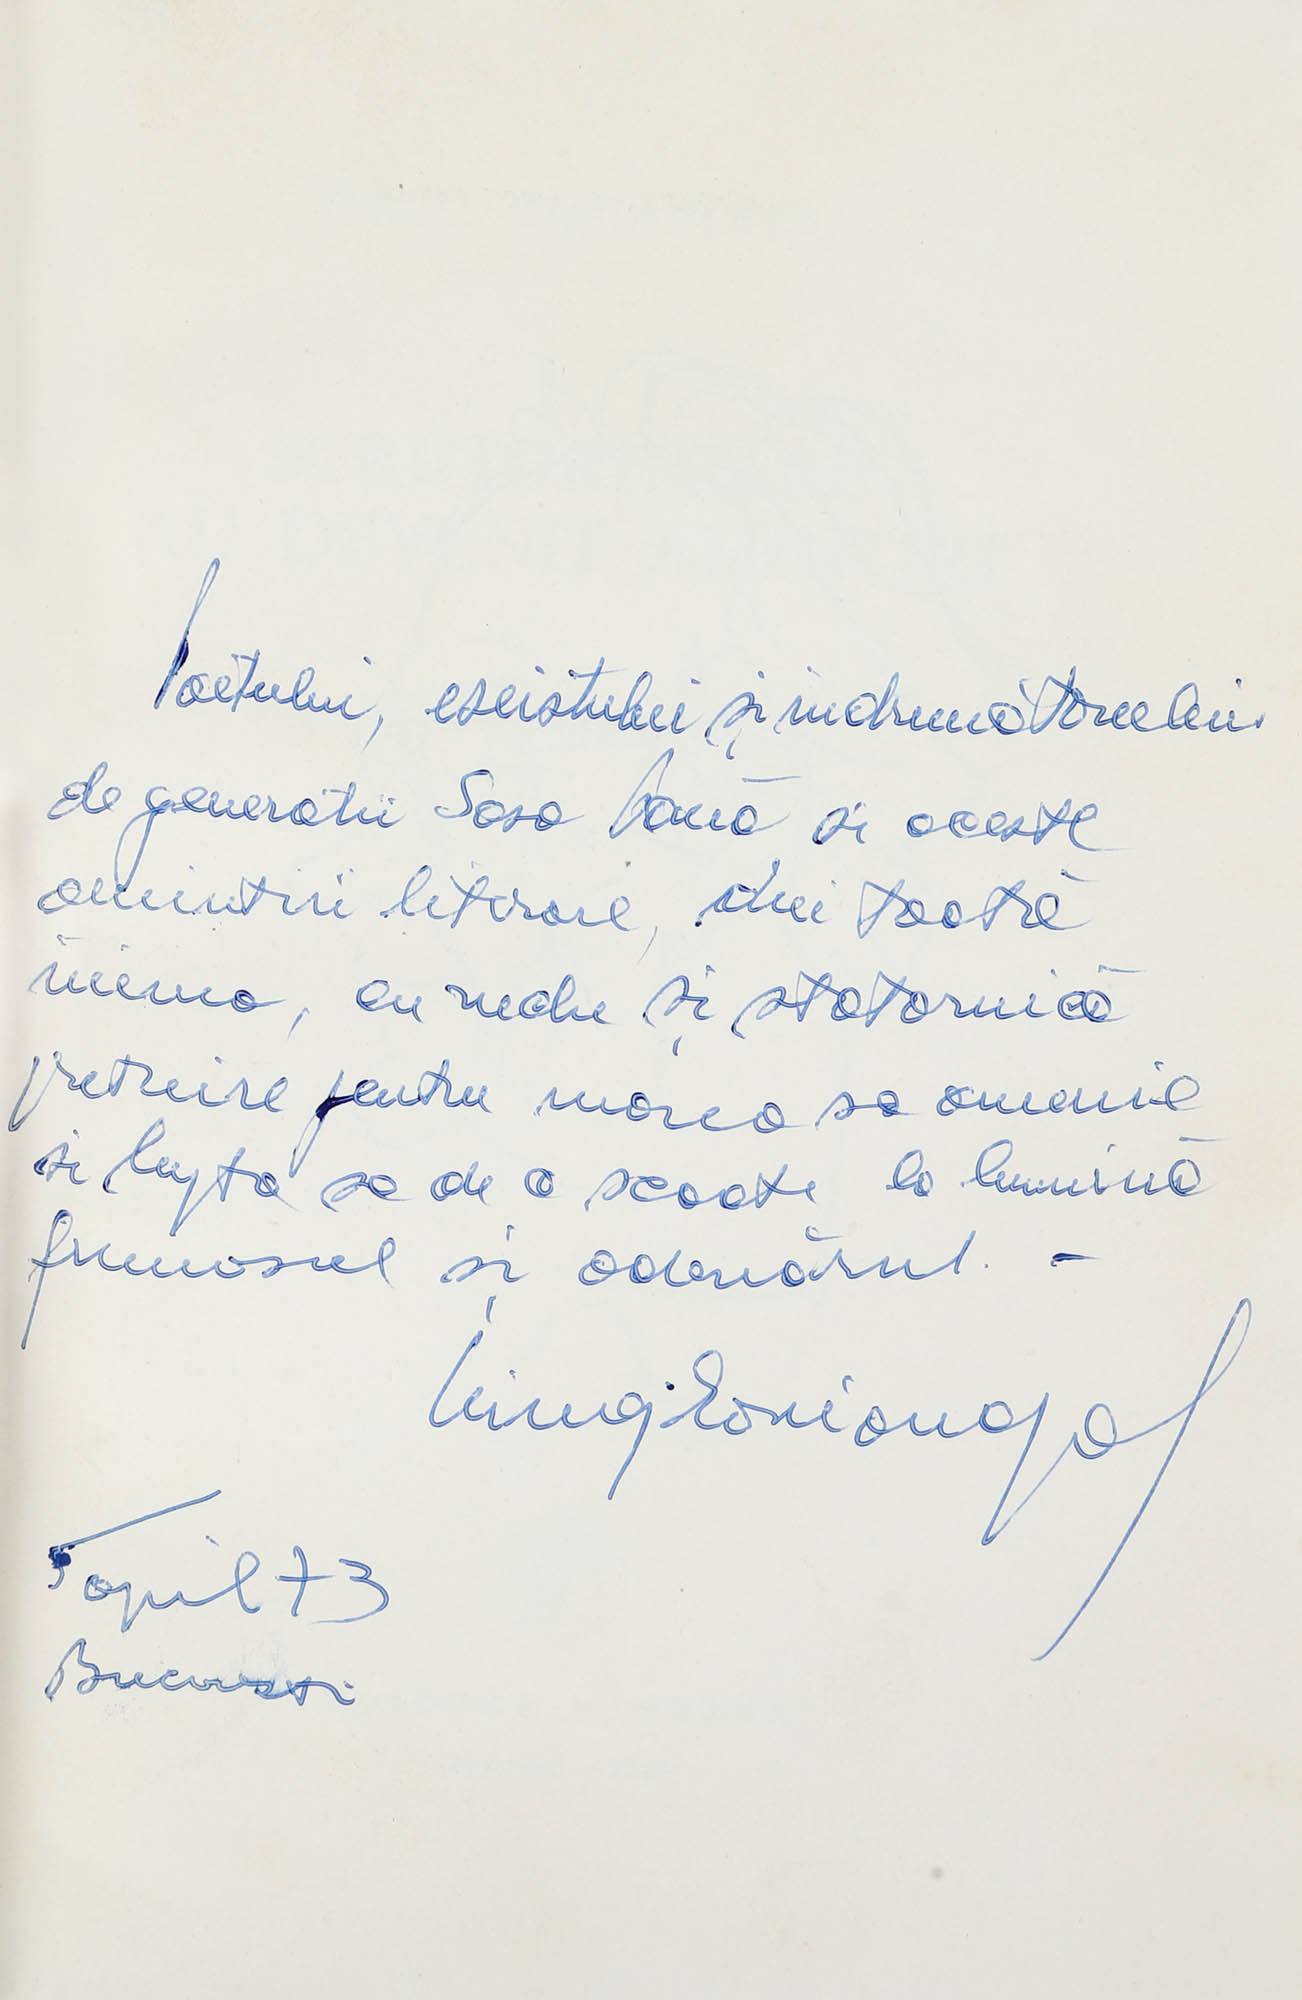 Poetului, eseistului și îndrumătorului
de generatii Sasa Pană si aceste
amintiri literare, din toată
inima, cu veche și statornică
pretuire pentru marea sa omenie
si lupta sa de a scoate la lumină
frumosul și adevărul. -
5 april 73
Bucuresti